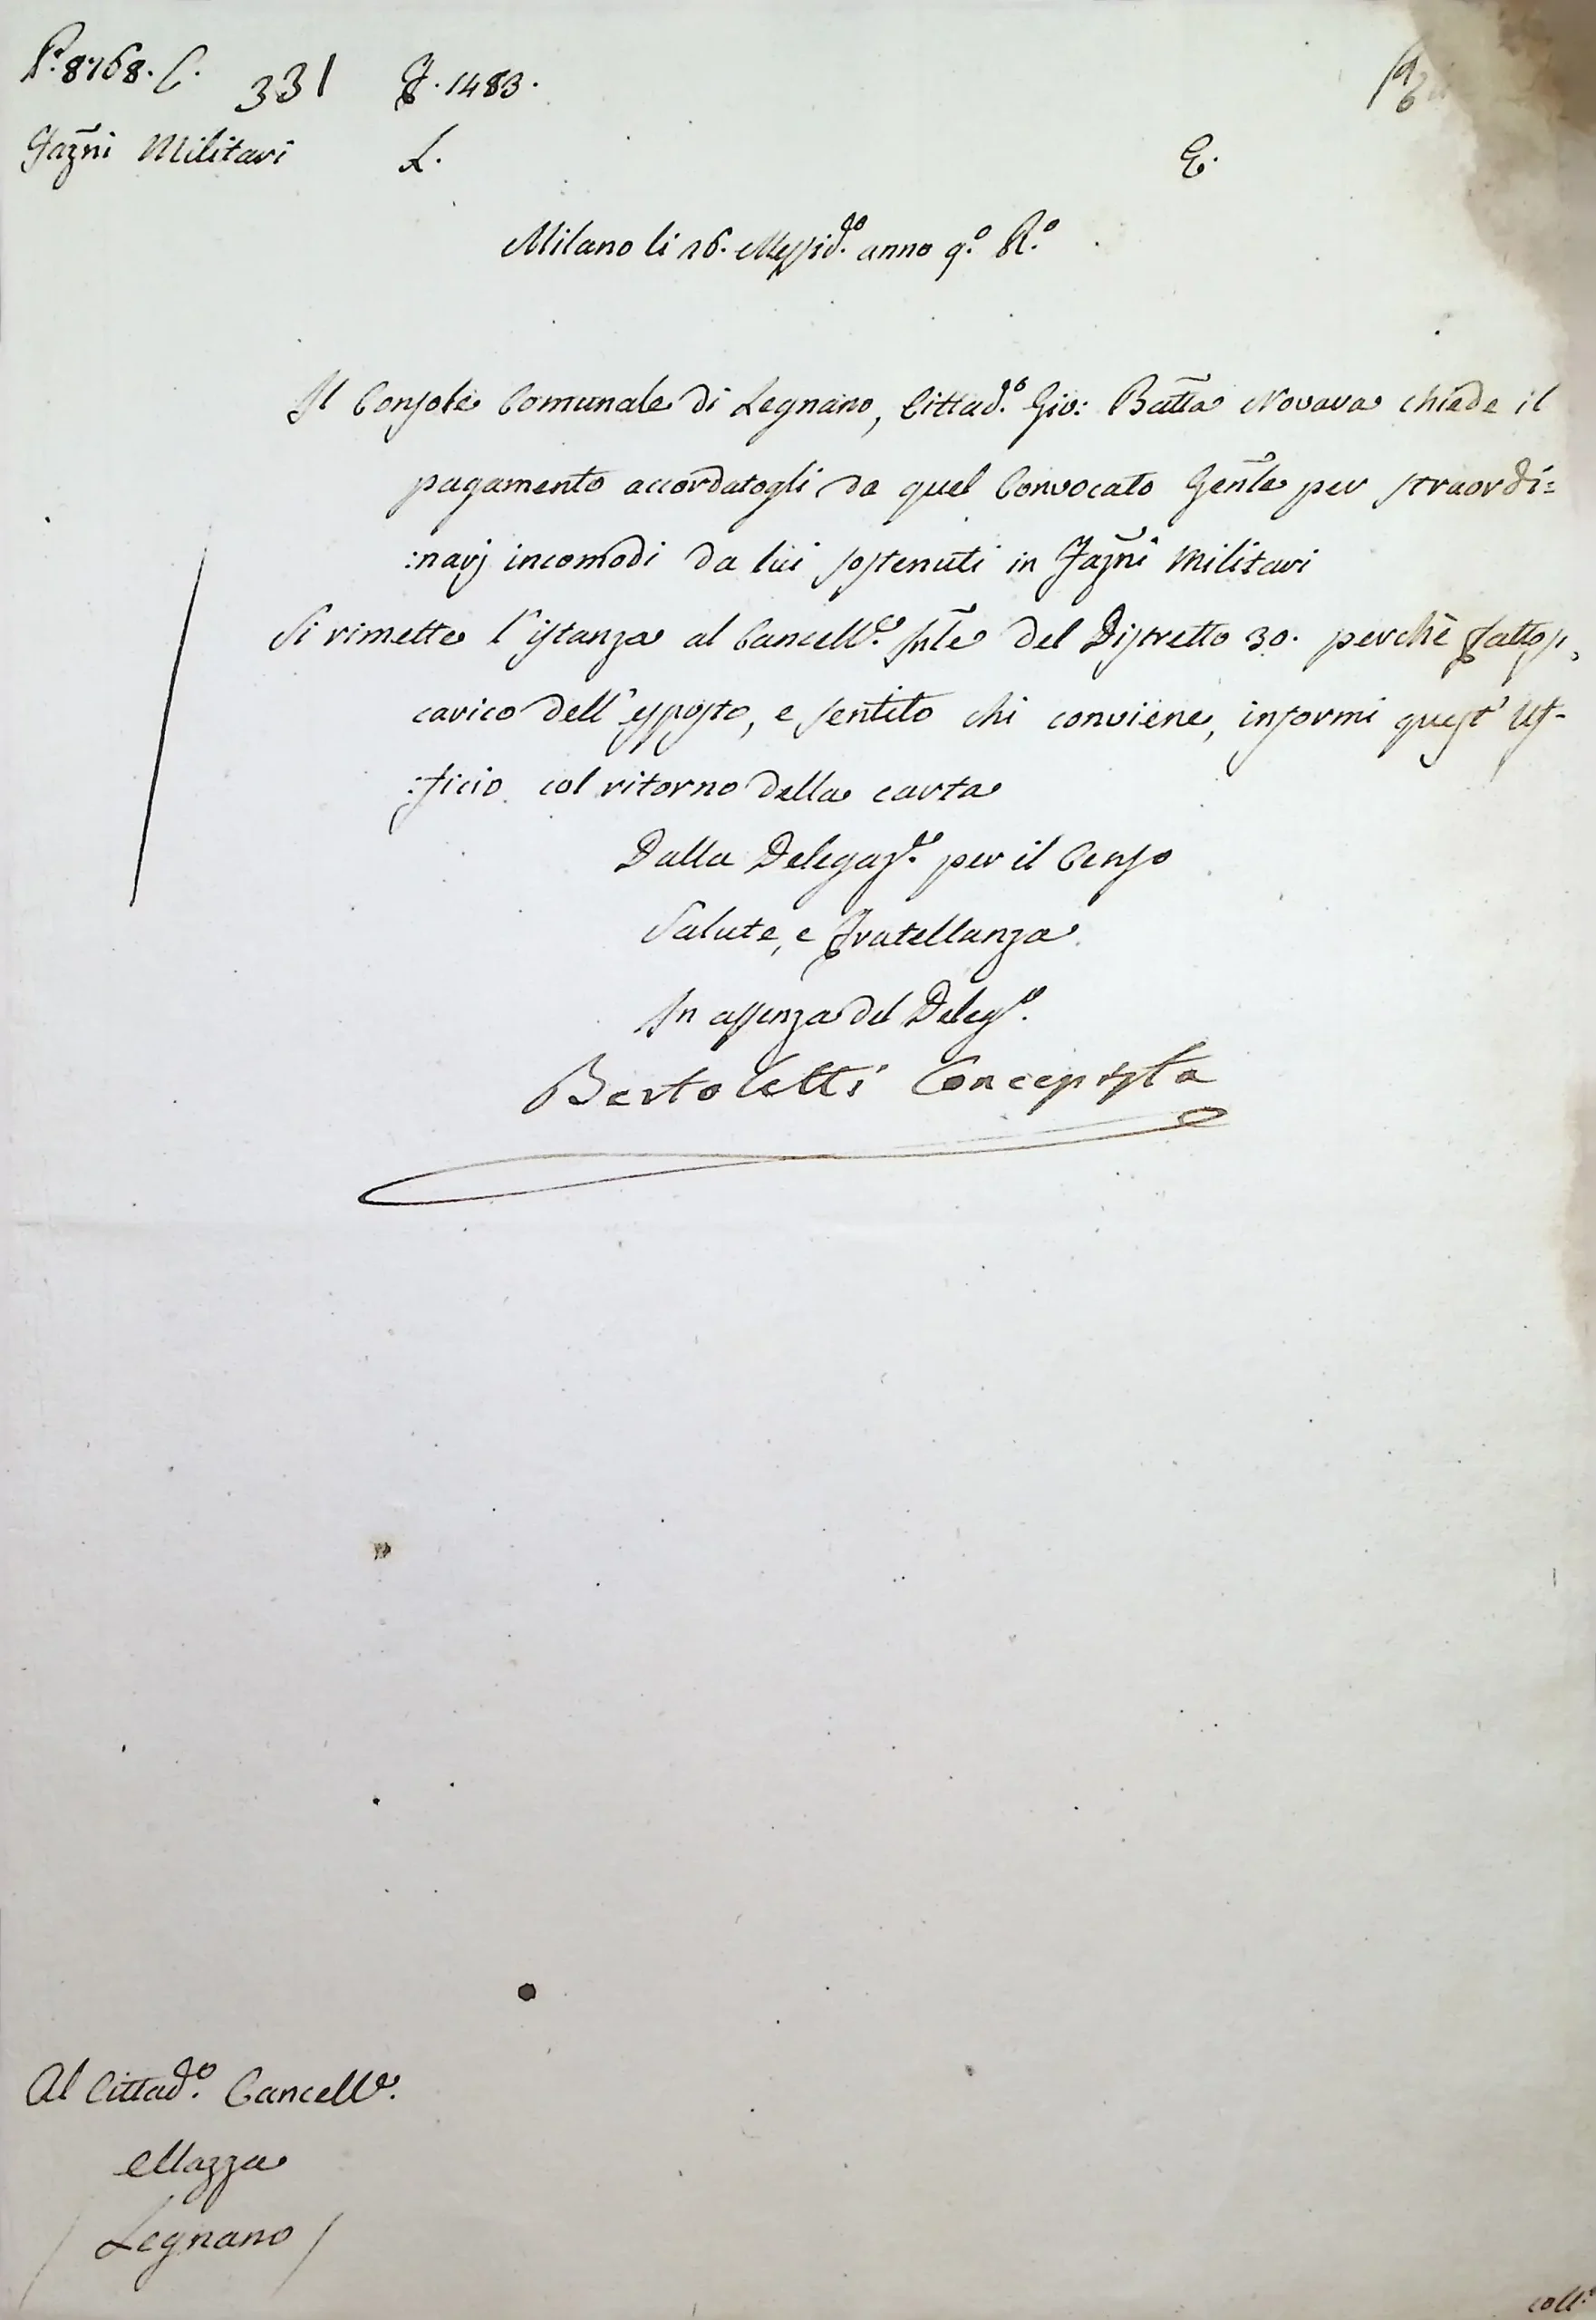 P. 8768. C. 331 F. 1483.
Fazñi Militari L. E.
Milano li 16. Messid.ro anno 9.o R.o
Il Console Comunale di Legnano, Cittad.o Gio: Batta Novara chiede il
pagamento accordatogli da quel Convocato Genle per straordi=
:narj incomodi da lui sostenuti in Fazñi Militari
Si rimette l'istanza al Cancell.e Inte del Distretto 30. perchè fattosi,
carico dell'esposto, e sentito chi conviene, informi quest' Uf-
:ficio col ritorno della carta
Dalla Delegaz.e per il Censo
Salute, e Fratellanza
In assenza del Deleg.o
Bertoletti Concepista
Al Cittad.o Cancell.e
Mazza
/ Legnano /
coll.o